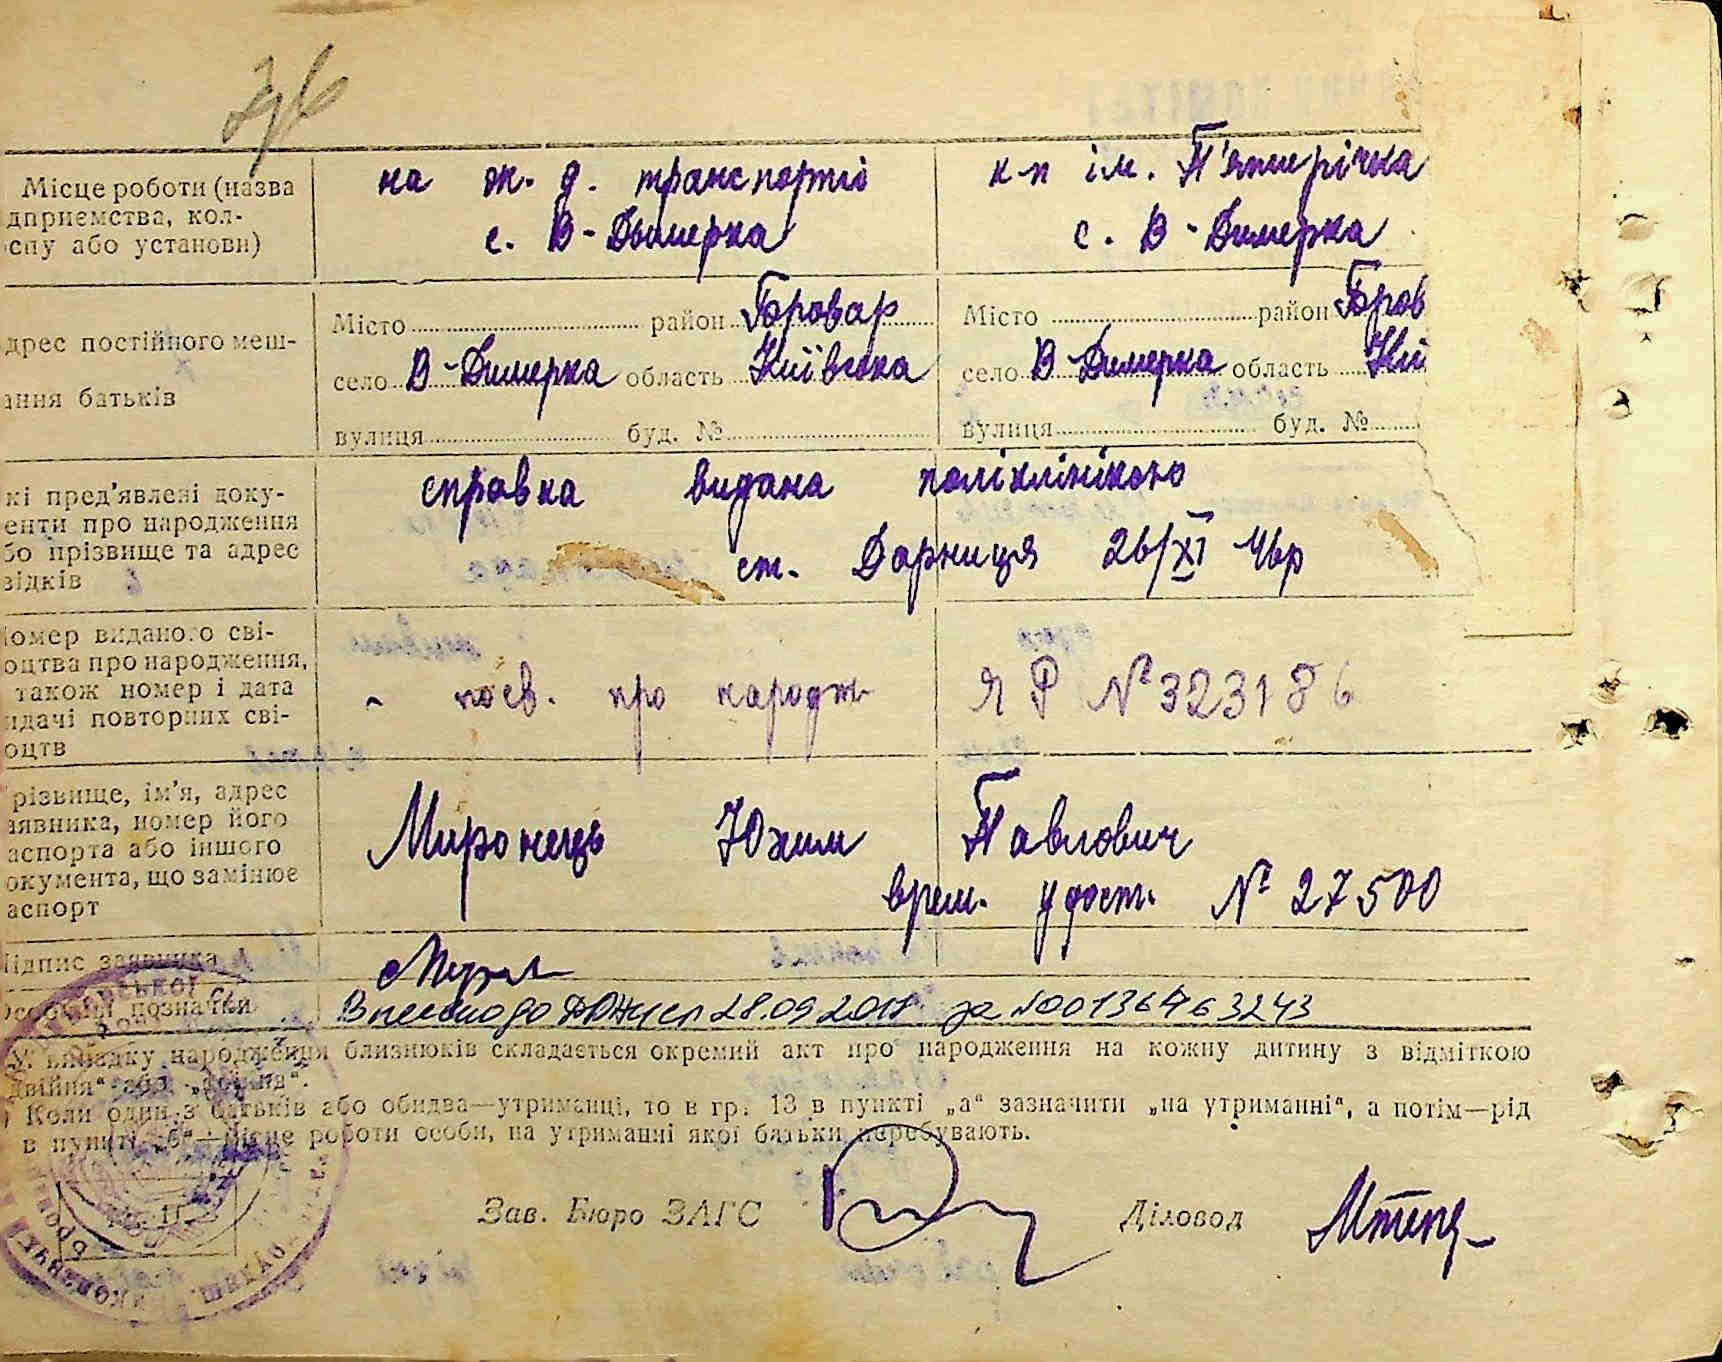 Місце роботи (назва
дприємства, кол-
спу або установи)
на ж. д. транспорті
с. В-Дымерка
к-п ім. П'ятирічка
с. В-Димерка
дрес постійного меш-
ання батьків
Місто район Бровар
село В-Димерка область Київська
вулиця буд. №
Місто район Бров
село В-Димерка область Киї
вулиця буд. №
кі пред'явлені доку-
енти про народження
бо прізвище та адрес
відків
справка видана поліклінікою
ст. Дарниця 26/XI 46р
омер виданого сві-
оцтва про народження,
також номер і дата
идачі повторних сві-
оцтв
посв. про народж ЯР № 323186
різвище, ім'я, адрес
аявника, номер його
аспорта або іншого
окумента, що замінює
аспорт
Миронець Юхим Павлович
врем. удост. № 27500
ідпис заявника
особливі позначки
28.09.2018 за №00136463243
У випадку народження близнюків складається окремий акт про народження на кожну дитину з відміткою
двійня“ або „трійня“.
) Коли один з батьків або обидва—утриманці, то в гр. 13 в пункті „а“ зазначити „на утриманні“, а потім—рід
в пункті „б“—місце роботи особи, на утриманні якої батьки перебувають.
Зав. Бюро ЗАГС Діловод